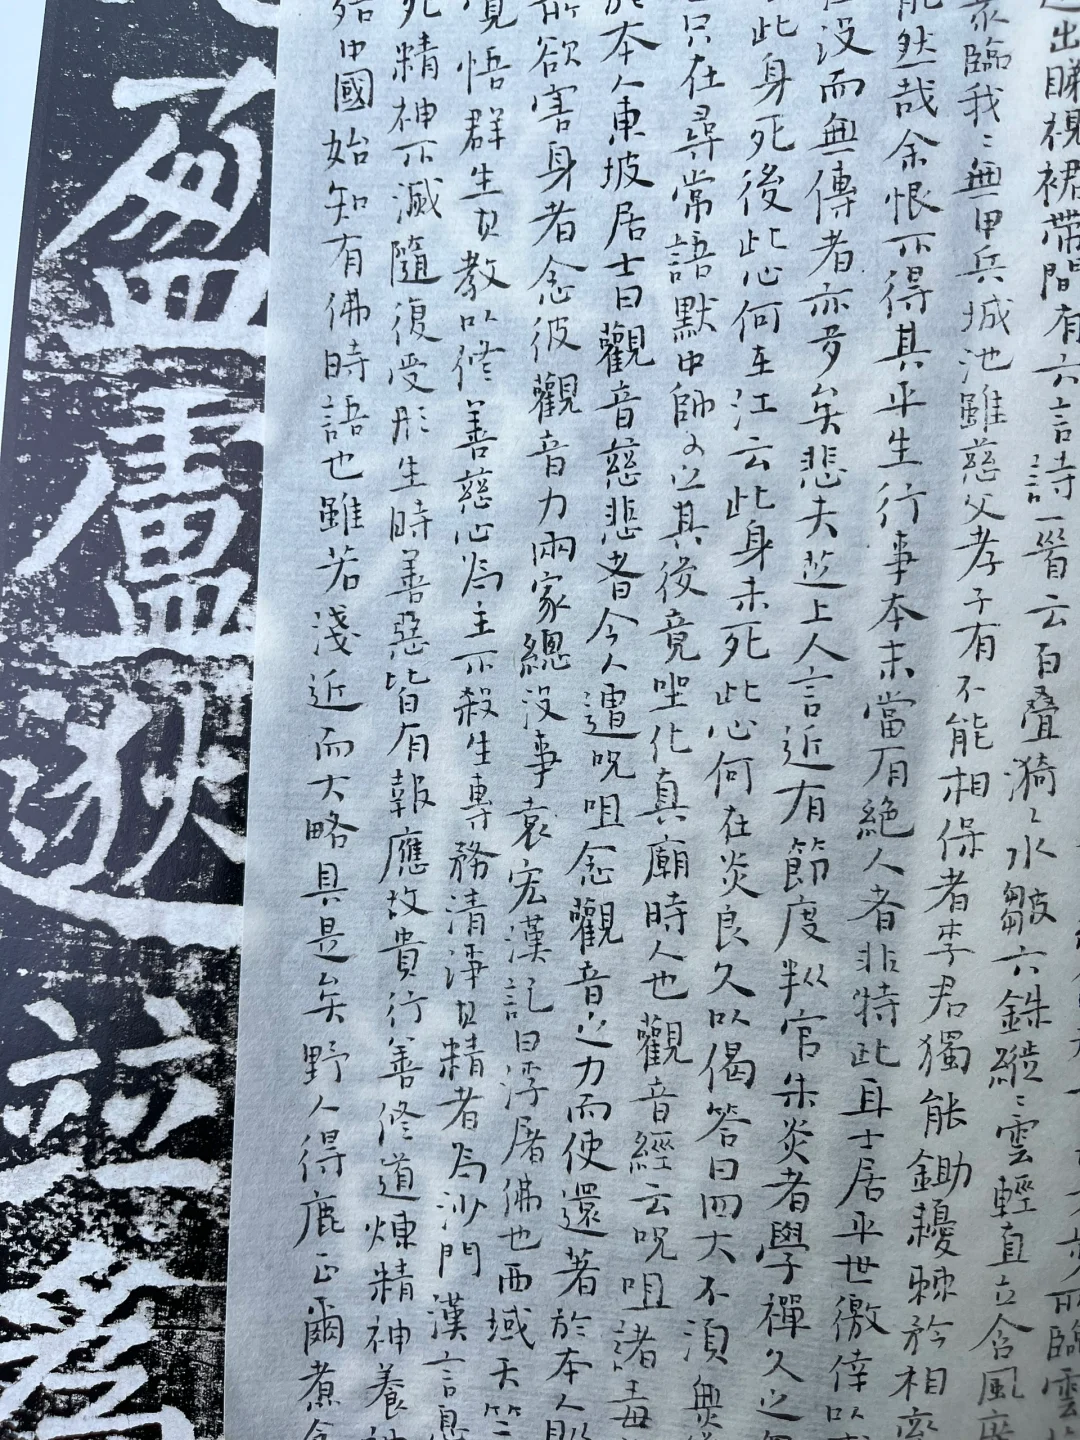 出睇視裙帶間有六言詩一首云百叠漪〻水皺六銖縰〻雲輕直立含風
臨我〻無甲兵城池雖慈父孝子有不能相保者李君獨能鋤耰棘矜相
能然哉余恨不得其平生行事本末當有絶人者非特此耳士居平世徼倖以
沒而無傳者亦多矣悲夫芝上人言近有節度判官朱炎者學禪久之
此身死後此心何在江云此身未死此心何在炎良久以偈答曰四大不須
只在尋常語默中師可之其後竟坐化真廟時人也觀音經云呪咀諸毒
於本人東坡居士曰觀音慈悲者今人遭呪咀念觀音之力而使還著於本人
所欲害身者念彼觀音力兩家總沒事袁宏漢記曰浮屠佛也西域天竺
覺悟群生其教以修善慈心為主不殺生專務清淨其精者為沙門漢言息
死精神不滅隨復受形生時善惡皆有報應故貴行善修道煉精神養
殆中國始知有佛時語也雖若淺近而大略具是矣野人得鹿正爾煮食
盈
盧
遞
並
為